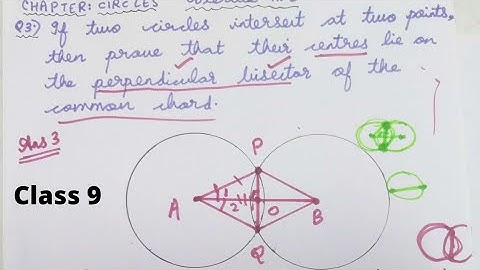 CHAPTER: CIRCLES
Q3:) If two circles intersect at two points,
then prove that their centres lie on
the perpendicular bisector of the
common chord.
Ans 3
Class 9
P
A 1 2 O B
Q